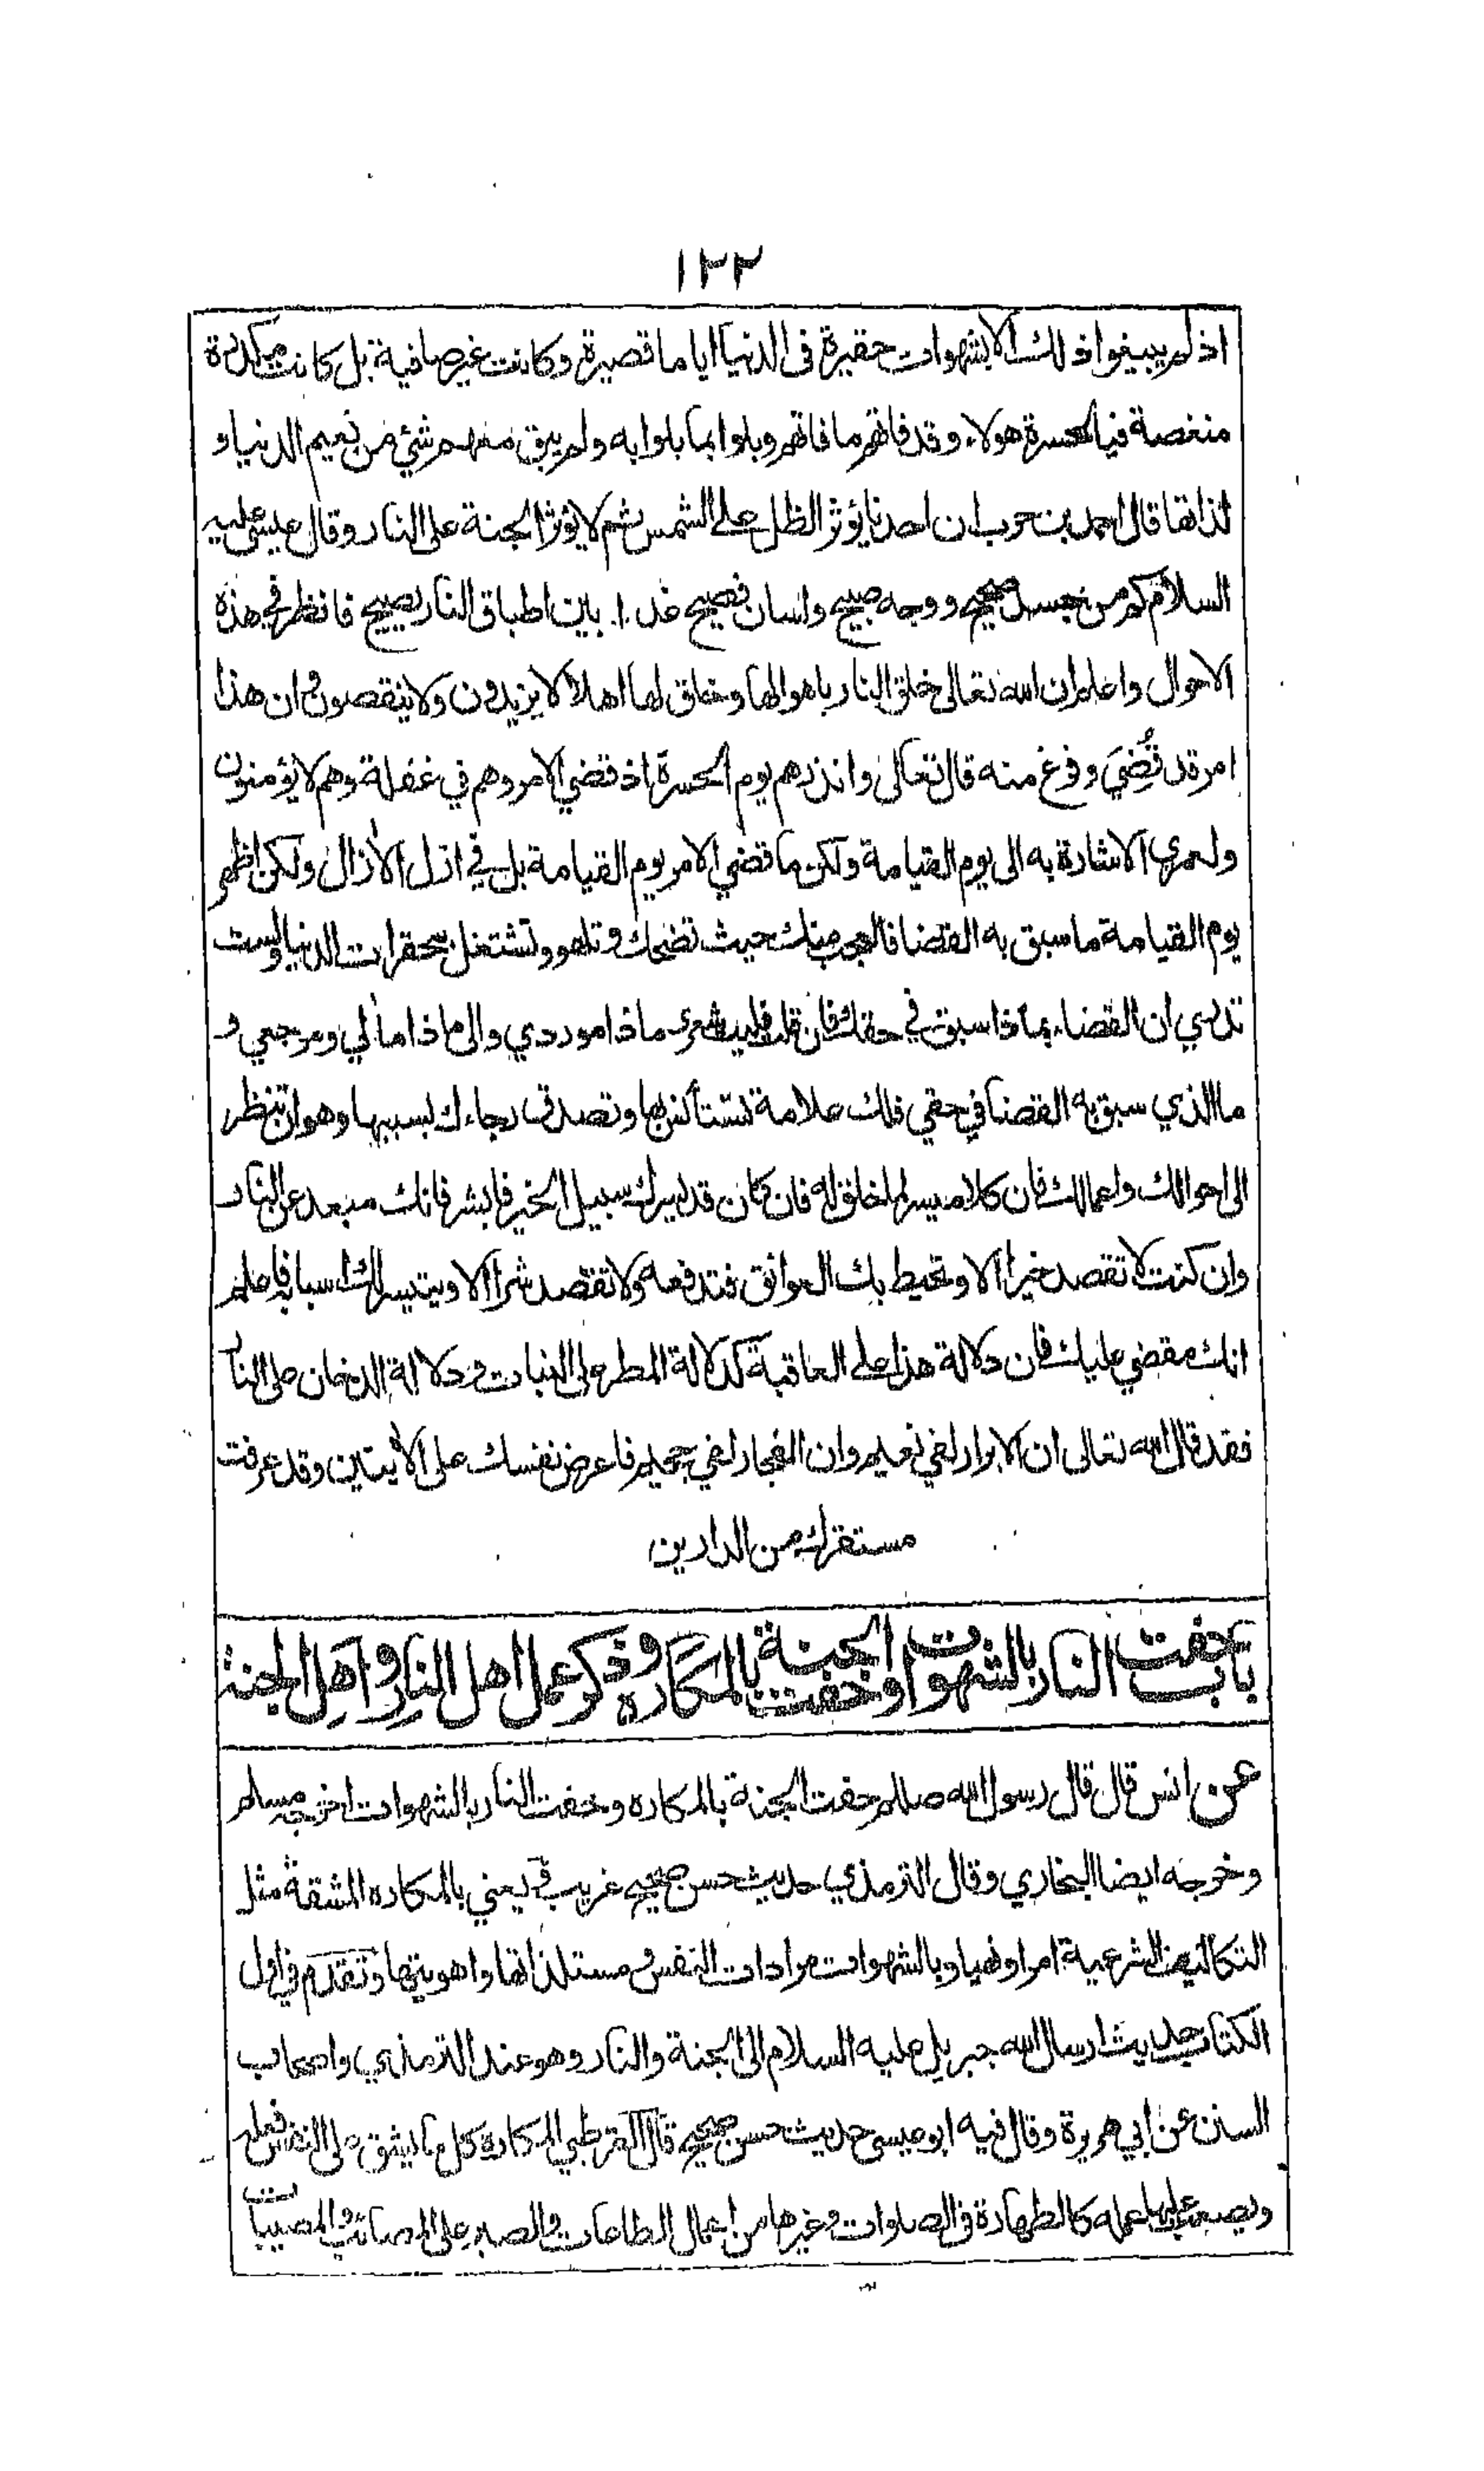 ١٢٢
اذ لم يبيغوا ذلك الا بشهوات حقيرة في الدنيا اياما قصيرة وكانت غير صافية بل كانت مكدرة
منغصة فيا لحسرة هولاء وقد فاتهم ما فاتهم وبلوا بما بلوا به ولم يبق معهم شئ من نعيم الدنيا و
لذاتها قال احمد بن حرب ان احدنا يؤثر الظل على الشمس ثم لا يؤثر الجنة على النار وقال عيسى عليه
السلام كم من جسد صحيح ووجه صبيح ولسان فصيح غدا بين اطباق النار يصيح فانظر في هذه
الاحوال واعلم ان الله تعالى خلق النار باهوالها وخلق لها اهلا لا يزيدون ولا ينقصون وان هذا
امر قد قُضِيَ وفرغ منه قال تعالى وانذرهم يوم الحسرة اذ قضي الامر وهم في غفلة وهم لا يؤمنون
ولعمري الاشارة به الى يوم القيامة ولكن ما قضي الامر يوم القيامة بل في ازل الآزال ولكن اظهر
يوم القيامة ما سبق به القضا فالعجب منك حيث تضحك وتلهو وتشتغل بمحقرات الدنيا ولست
تدري ان القضاء بماذا سبق في حقك فان قلت فليت شعري ماذا موردي والى ماذا مآلي ومرجعي و
ما الذي سبق به القضا في حقي فلك علامة تستأنس بها وتصدق رجاءك بسببها وهو ان تنظر
الى احوالك واعمالك فان كلا ميسر لما خلق له فان كان قد يسر لك سبيل الخير فابشر فانك مبعد عن النار
وان كنت لا تقصد خيرا الا وتحيط بك العوائق فتدفعه ولا تقصد شرا الا ويتيسر لك اسبابه فاعلم
انك مقضي عليك فان دلالة هذا على العاقبة كدلالة المطر على النبات ودلالة الدخان على النار
فقد قال الله تعالى ان الابرار لفي نعيم وان الفجار لفي جحيم فاعرض نفسك على الآيتين وقد عرفت
مستقرك من الدارين
باب حفت النار بالشهوات وحفت الجنة بالمكاره وذكر عمل اهل النار واهل الجنة
عن انس قال قال رسول الله صللم حفت الجنة بالمكاره وحفت النار بالشهوات اخرجه مسلم
وخرجه ايضا البخاري وقال الترمذي حديث حسن صحيح غريب ق يعني بالمكاره المشقة مثل
التكاليف الشرعية امرا ونهيا وبالشهوات مرادات النفس ومستلذاتها واهويتها وتقدم في اول
الكتاب حديث ارسال الله جبريل عليه السلام الى الجنة والنار وهو عند الترمذي واصحاب
السنن عن ابي هريرة وقال فيه ابو عيسى حديث حسن صحيح قال القرطبي المكاره كل ما يشق على النفس فعله
ويصعب عليها عمله كالطهارة في الصلوات وغيرها من اعمال الطاعات والصبر على المصائب والمصيبات